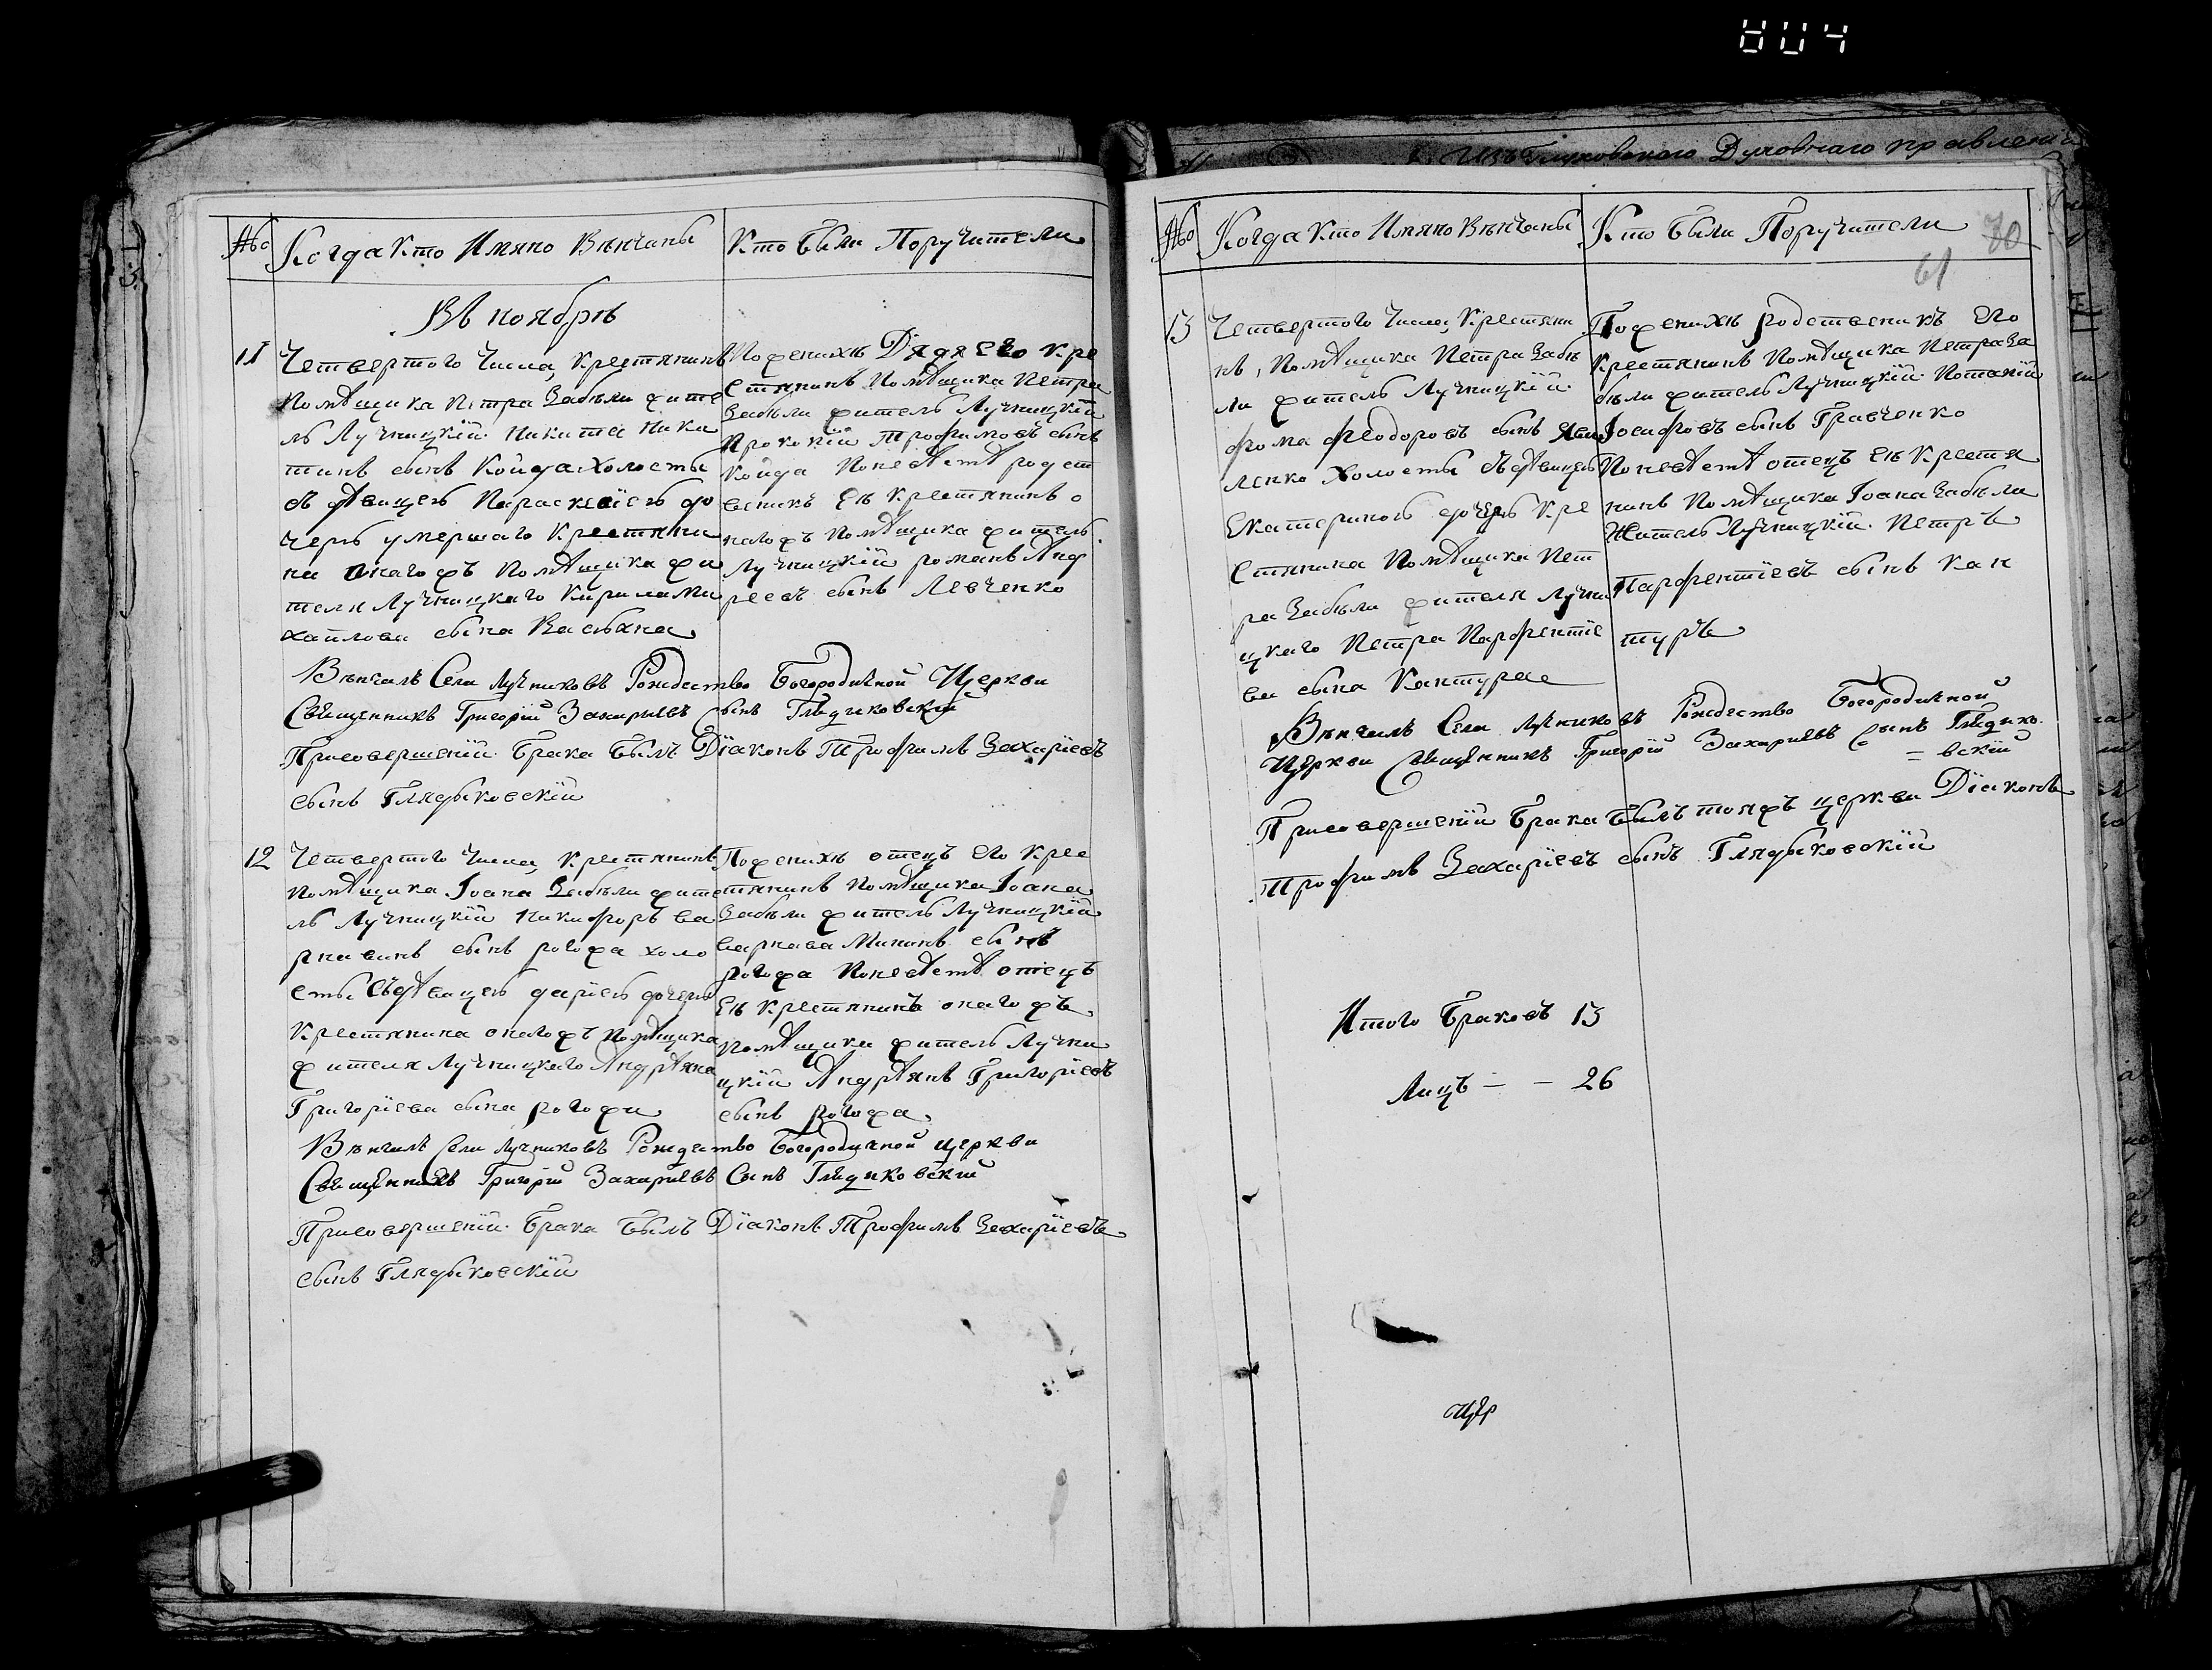 804
Изъ Глуховского Духовнаго правленія
№
Когда Кто Имяно Вѣнчаны
Кто были Поручители
Въ ноябрѣ
11
Четвертого Числа, Крестянинъ
Помѣщика Петра Забѣли жите
ль Лучницкій Никита Ники
тинъ сынъ Койда холосты
съ дѣвицею Параскевіею до
черю умершаго Крестяни
на онагожъ Помѣщика жи
теля Лучницкаго Кирила Ми
хаилова сына Васюхна
Пожениxѣ Дядя его кре
стянинъ Помѣщика Петра
Забѣли житель Лучницкій
Прокопій Трофимовъ сынъ
Койда Поневѣстѣ родст
веникъ Ея Крестянинъ о
нагожъ Помѣщика житель
Лучницкій романъ Анд
реевъ сынъ Левченко
Вѣнчалъ Села Лучниковъ Рождество Богородичной Церкви
Священникъ Григорій Захаріевъ Сынъ Глядиковскій
Присовершеніи Брака былъ Діаконъ Трофимъ Захаріевъ
сынъ Глядыковскій
12
Четвертого Числа, Крестянинъ
Помѣщика Іоана Забѣли жите
ль Лучницкій Никифоръ Ва
рнавинъ сынъ рогожа холо
сты Съдѣвицею даріею дочерю
Крестянина онагожъ Помѣщика
жителя Лучницкаго Андрѣяна
Григоріева сына рогожи
Пожениxѣ отецъ его Крес
тянинъ Помѣщика Іоана
Забѣли житель Лучницкій
Варнава Мининъ сынъ
рогожа Поневѣстѣ отецъ
Ея Крестянинъ онагожъ
Помѣщика житель Лучни
цкій Андрѣянъ Григоріевъ
сынъ рогожа
Вѣнчалъ Села Лучниковъ Рождество Богородичной Церкви
Священникъ Григорій Захаріевъ Сынъ Глядиковскій
Присовершеніи Брака былъ Діаконъ Трофимъ Захаріевъ
сынъ Глядыковскій
№
Когда Кто Имяно Вѣнчаны
Кто были Поручители
70
61
13
Четвертого Числа, Крестяни
нъ, Помѣщика Петра Забѣ
ли житель Лучницкій
фома Феодоровъ сынъ
ленко Холосты съдѣвицею
Екатериною дочерю Кре
стянина Помѣщика Пет
ра Забѣли жителя Лучни
цкаго Петра Парфентіе
ва сына Кантура
Пожениxѣ родственикъ Его
Крестянинъ Помѣщика Петра За
бѣли житель Лучницкій Потапій
Іосифовъ сынъ Гравченко
Поневѣстѣ отецъ Ея Крестя
нинъ Помѣщика Іоана Забѣли
Житель Лучницкій Петръ
Парфентіевъ сынъ Кан
туръ
Вѣнчалъ Села Лучниковъ Рождество Богородичной
Церкви Священникъ Григорій Захаріевъ Сынъ Глядико
= вскій
Присовершеніи Брака былъ тояжъ церкви Діаконъ
Трофимъ Захаріевъ сынъ Глядыковскій
Итого Браковъ 13
Лицъ - - 26
Цер